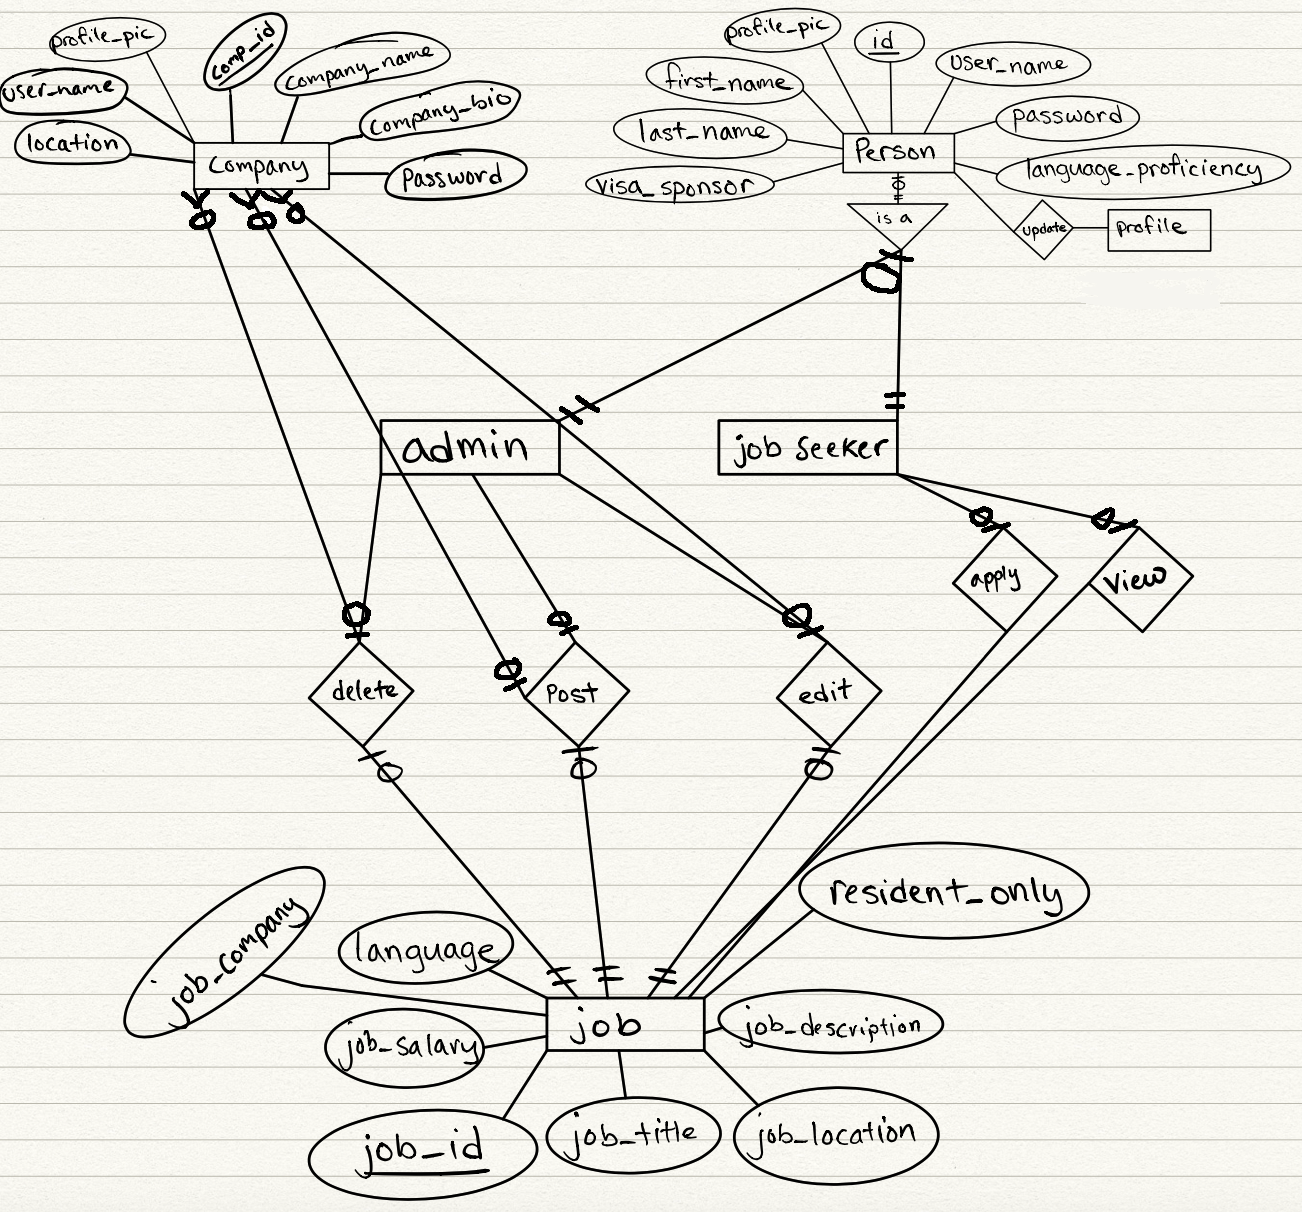 profile_pic
comp_id
company_name
user_name
company_bio
location
Company
Password
profile_pic
id
user_name
first_name
password
last_name
Person
language_proficiency
visa_sponsor
is a
update
profile
admin
job seeker
apply
View
delete
Post
edit
resident_only
job_company
language
job
job_description
job_salary
job_id
job_title
job_location